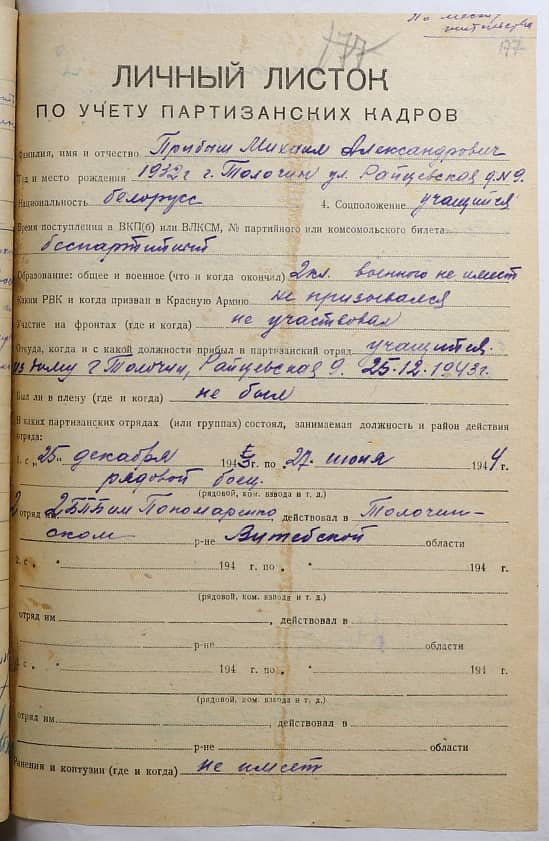 По месту
жительства
177
177
ЛИЧНЫЙ ЛИСТОК
ПО УЧЕТУ ПАРТИЗАНСКИХ КАДРОВ
Фамилия, имя и отчество Прибыш Михаил Александрович
Год и место рождения 1932 г г. Толочин ул. Райцевская д. №9.
Национальность белорусс 4. Соцположение учащийся
Время поступления в ВКП(б) или ВЛКСМ, № партийного или комсомольского билета
беспартийный
Образование: общее и военное (что и когда окончил) 2 кл. военного не имеет
Каким РВК и когда призван в Красную Армию не призывался
Участие на фронтах (где и когда) не участвовал
Откуда, когда и с какой должности прибыл в партизанский отряд учащийся.
из дому г Толочин, Райцевская 9. 25.12.1943 г.
Был ли в плену (где и когда) не был
В каких партизанских отрядах (или группах) состоял, занимаемая должность и район действия
отряда:
1. с „25" декабря 1943 г. по 27. июня 1944 г.
рядовой боец.
(рядовой, ком. взвода и т. д.)
2 отряд 2 БПБ им Пономаренко, действовал в Толочин-
ском р-не Витебской области
2. с „ " 194 г. по „ " 194 г.
(рядовой, ком. взвода и т. д.)
отряд им, действовал в
р-не области
с „ " 194 г. по „ " 194 г.
(рядовой, ком. взвода и т. д.)
отряд им., действовал в
р-не области
Ранения и контузии (где и когда) не имеет